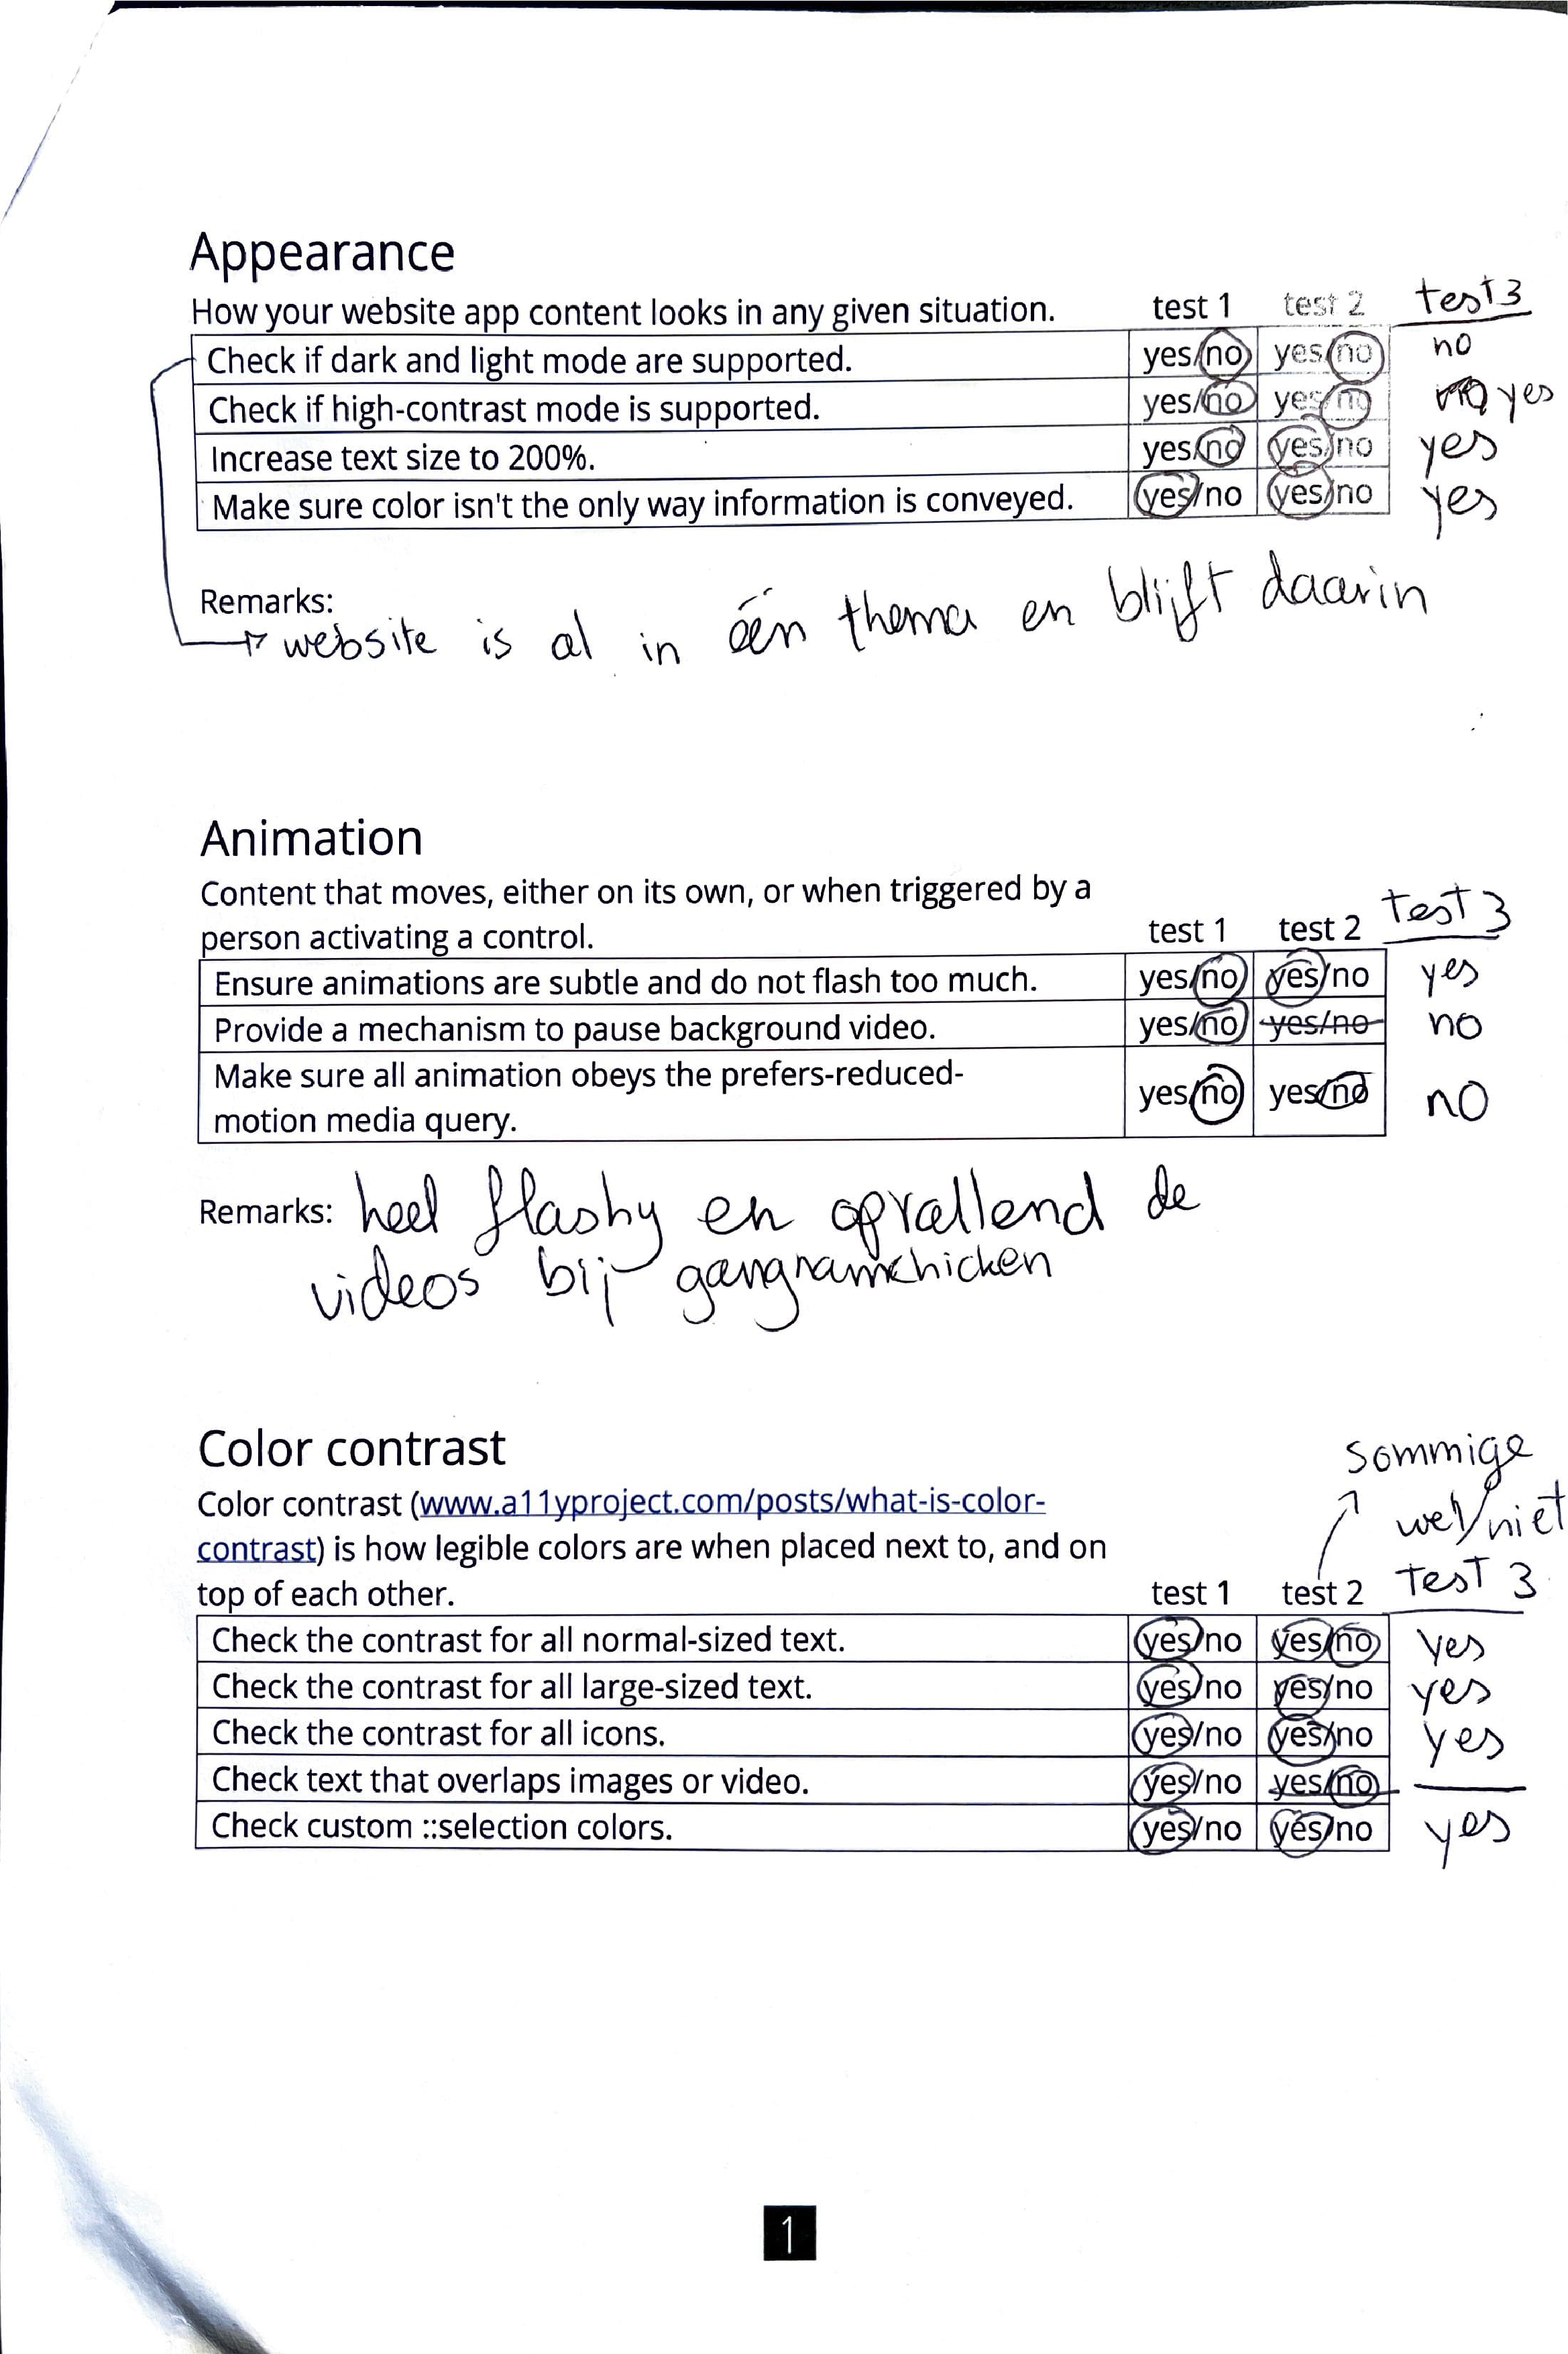 Appearance
How your website app content looks in any given situation. test 1 test 2 test 3
Check if dark and light mode are supported. yes/no yes/no no
Check if high-contrast mode is supported. yes/no yes/no no yes
Increase text size to 200%. yes/no yes/no yes
Make sure color isn't the only way information is conveyed. yes/no yes/no yes
Remarks:
website is al in één thema en blijft daarin
Animation
Content that moves, either on its own, or when triggered by a
person activating a control. test 1 test 2 test 3
Ensure animations are subtle and do not flash too much. yes/no yes/no yes
Provide a mechanism to pause background video. yes/no yes/no no
Make sure all animation obeys the prefers-reduced-
motion media query. yes/no yes/no no
Remarks: heel flashy en opvallend de
videos bij gangnamchicken
Color contrast
sommige
wel/niet
Color contrast (www.a11yproject.com/posts/what-is-color-
contrast) is how legible colors are when placed next to, and on
top of each other. test 1 test 2 test 3
Check the contrast for all normal-sized text. yes/no yes/no yes
Check the contrast for all large-sized text. yes/no yes/no yes
Check the contrast for all icons. yes/no yes/no yes
Check text that overlaps images or video. yes/no yes/no
Check custom ::selection colors. yes/no yes/no yes
1